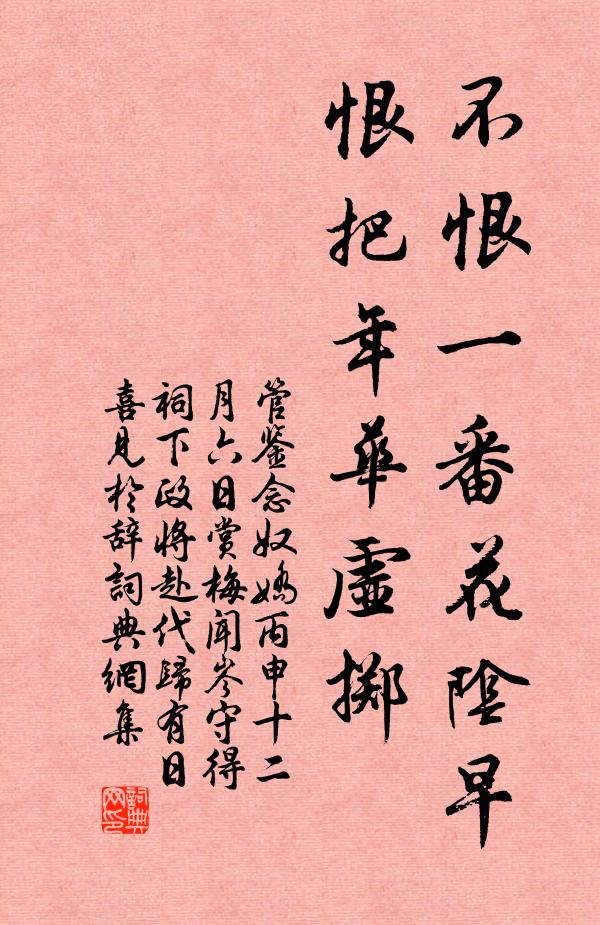 不恨一番花陰早
恨把年華虛擲
管鉴念奴嬌丙申十二
月六日赏梅聞岑守得
祠下政将赴代歸有日
喜見於辞詞典網集
詞典
网印